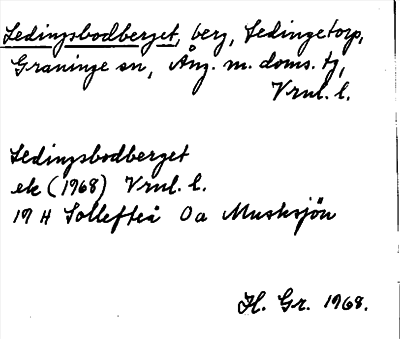 Ledingsbodberget, berg, Ledingetorp,
Graninge sn, Ång. m. doms. tj,
Vrnl. l.
Ledingsbodberget
ek (1968) Vrnl. l.
19 H Sollefteå 0a Musksjön
H. Gr. 1968.